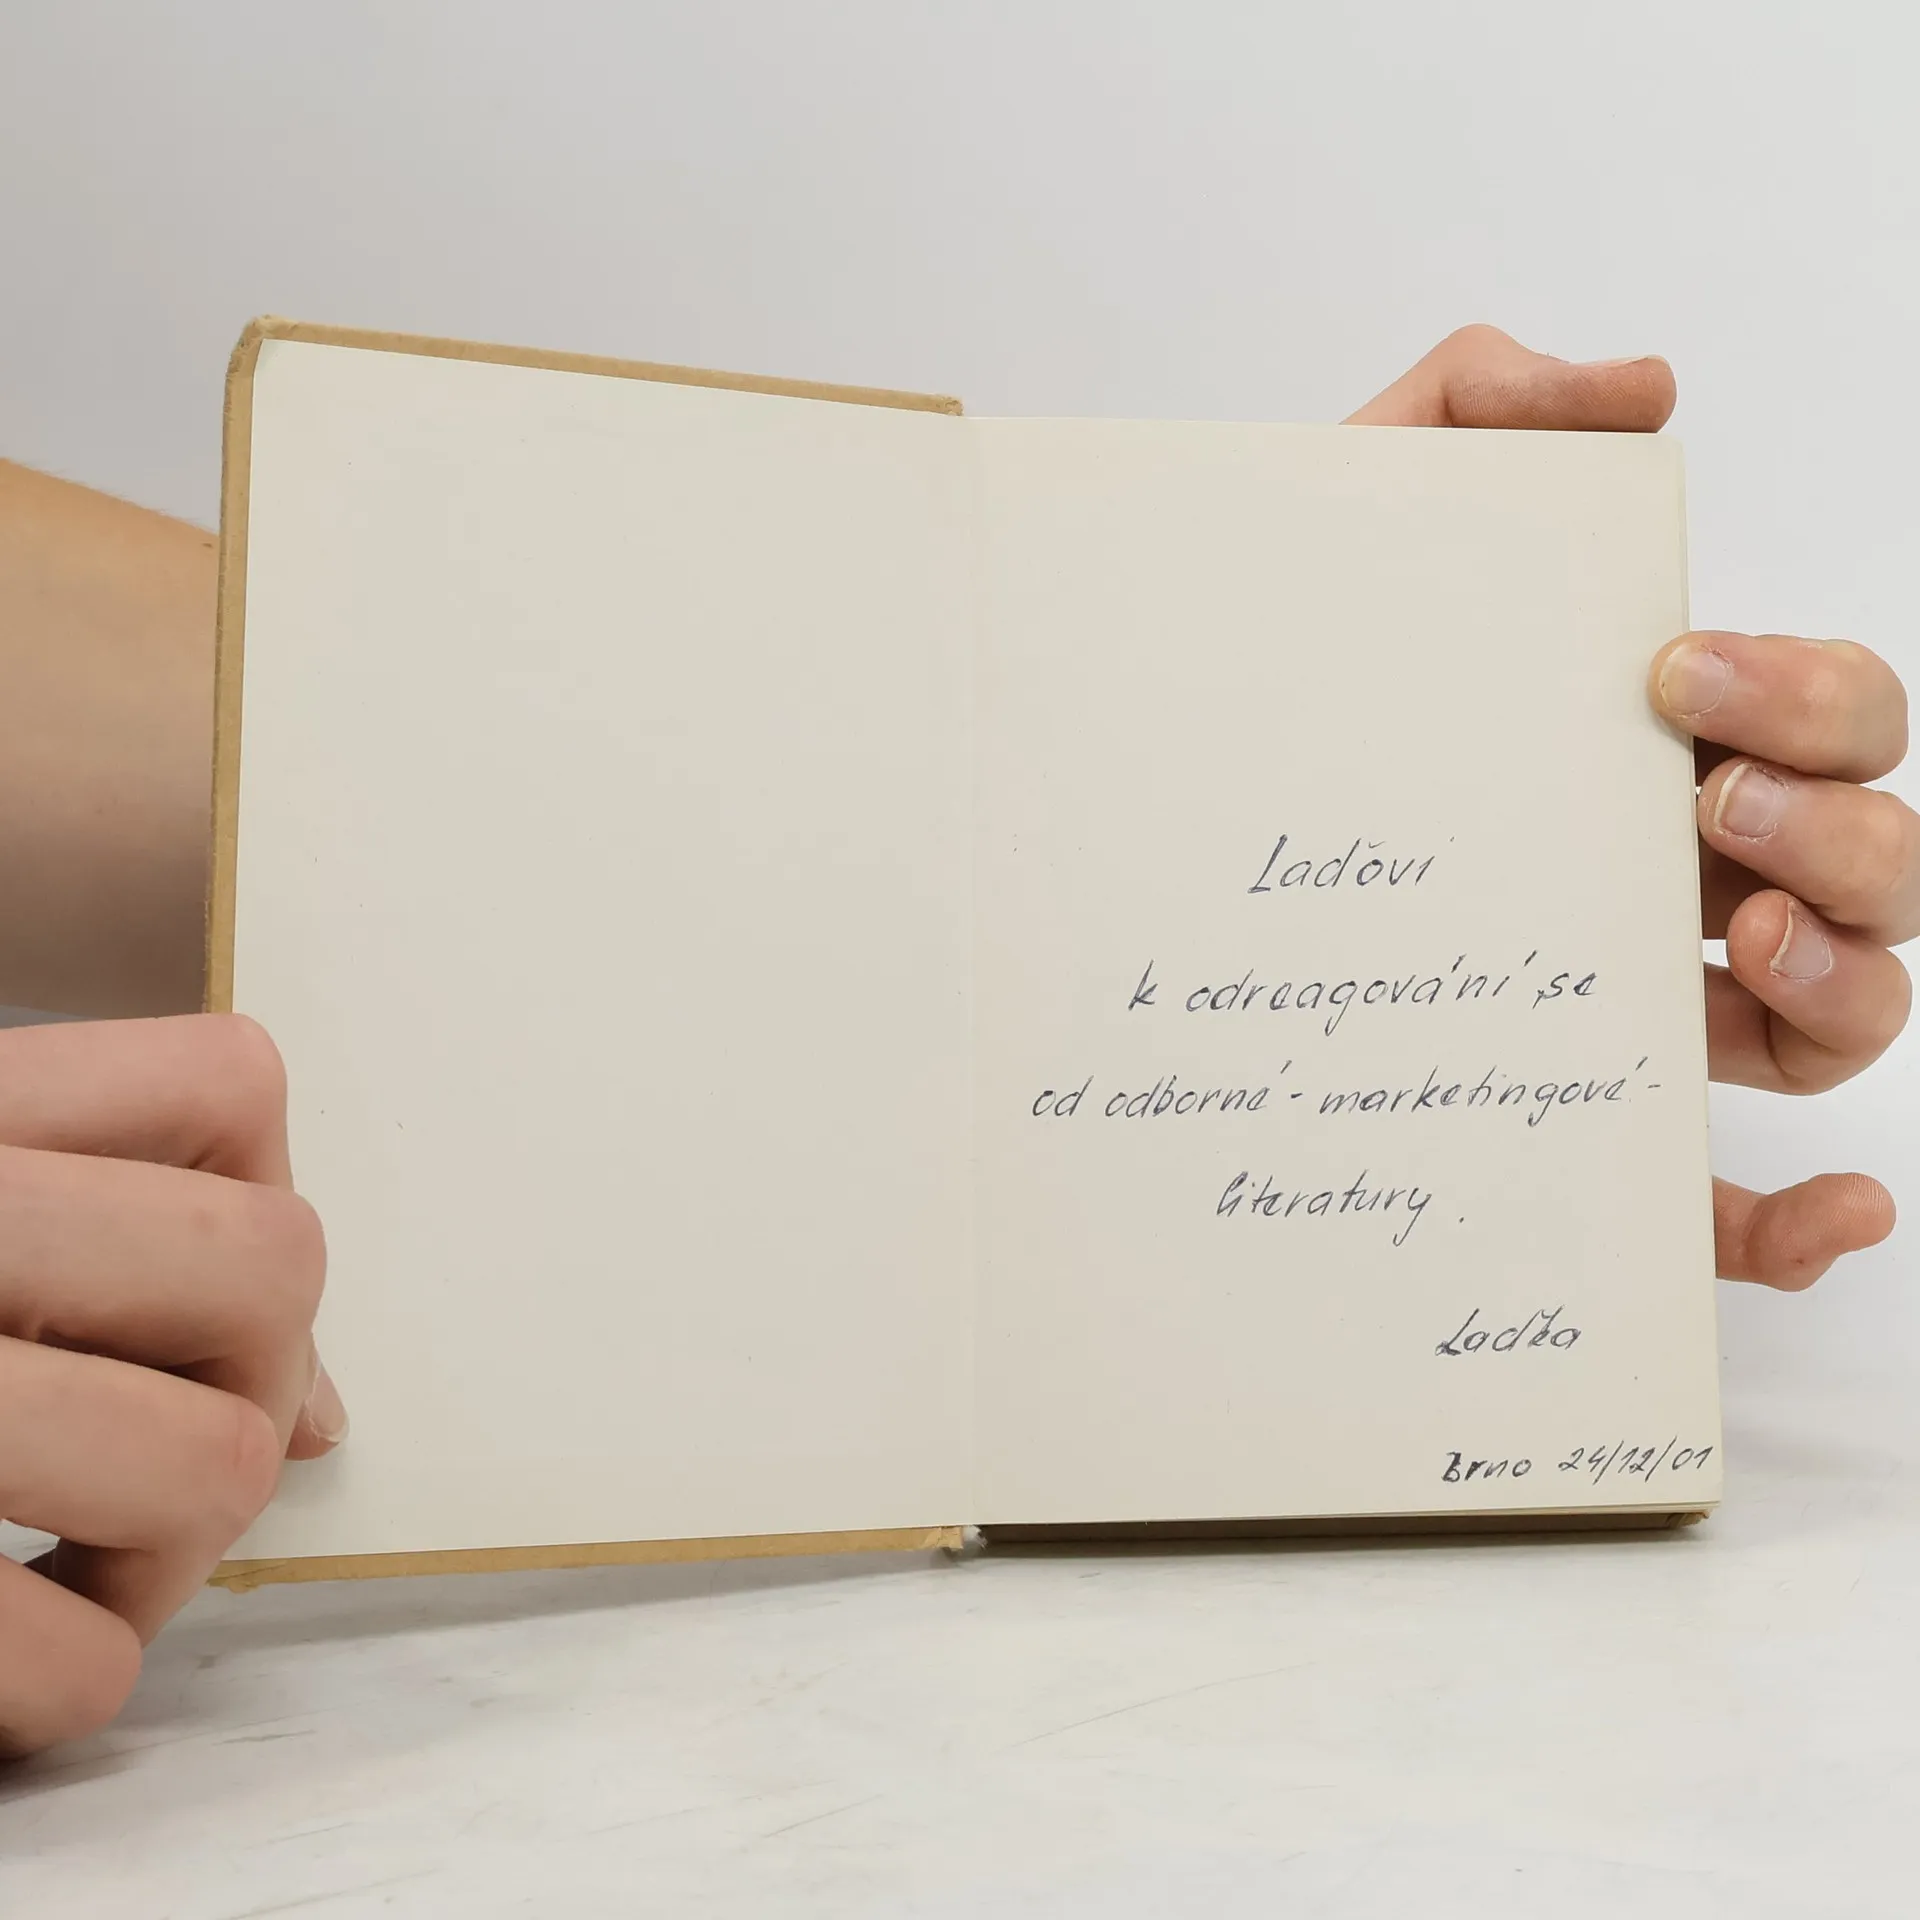 Laďovi
k odreagování se
od odborné - marketingové -
literatury .
Laďka
Brno 24/12/01